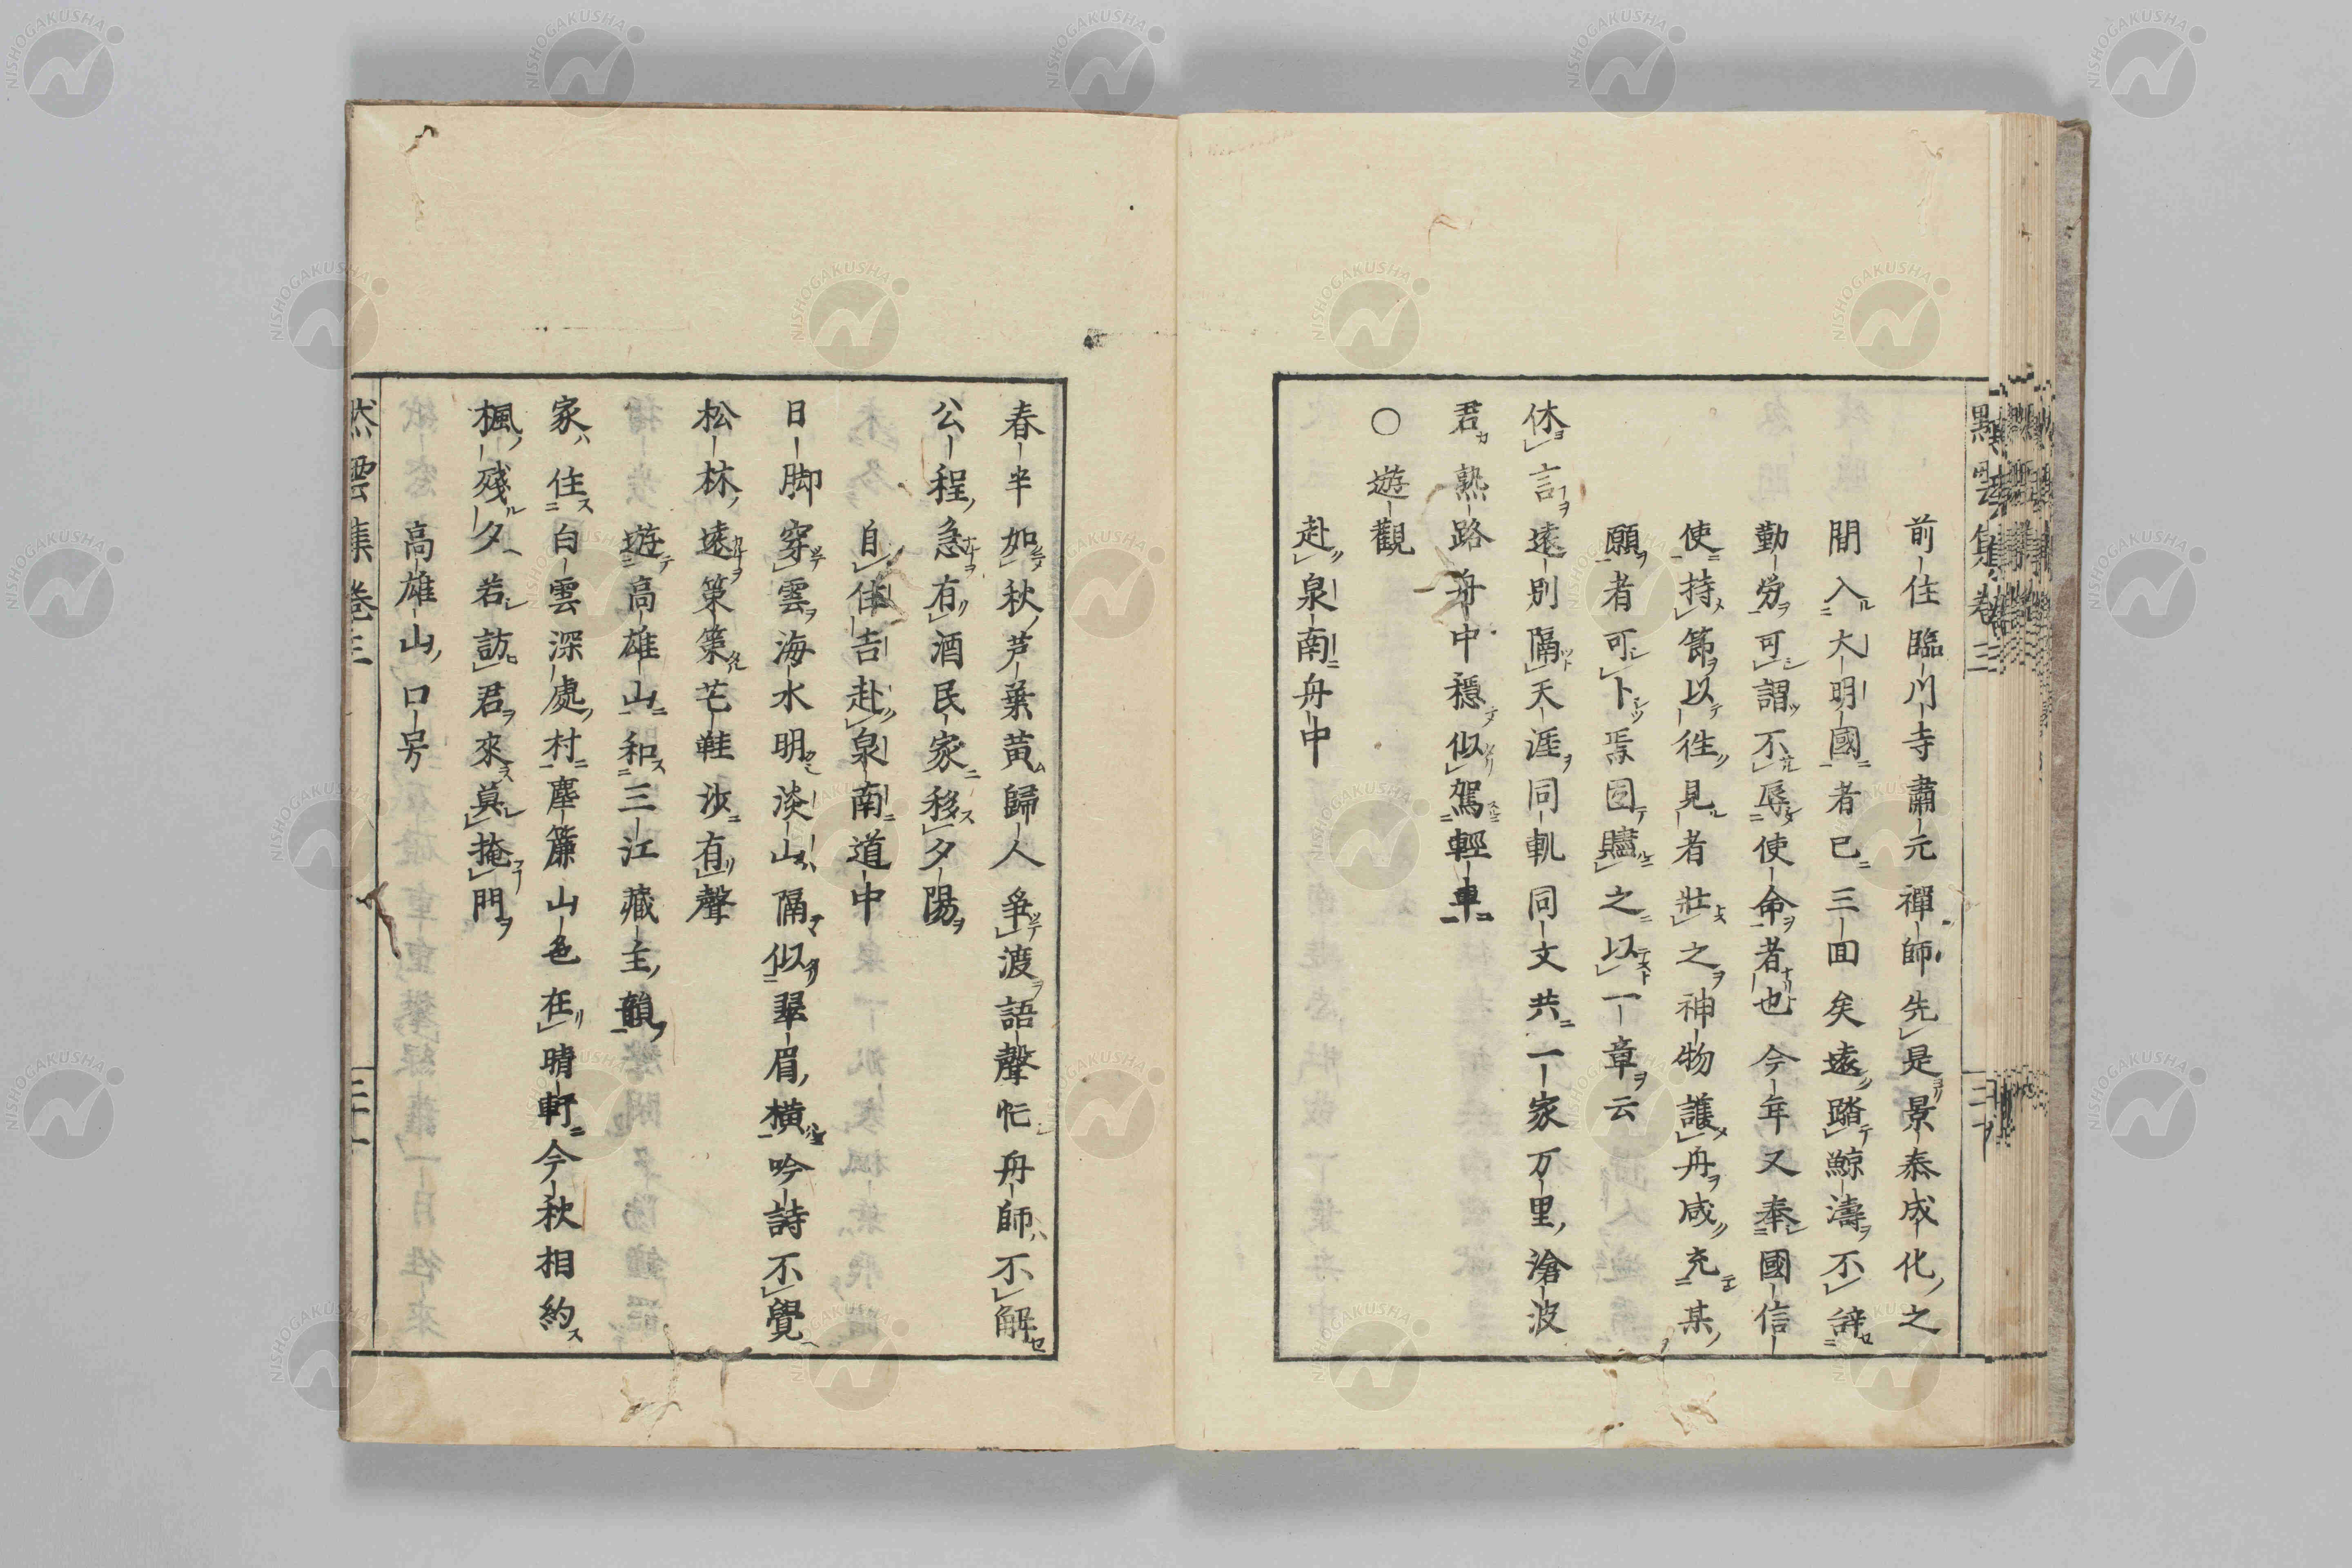 前住臨川寺肅元禪師先是景泰成化之
間入大明國者已三囬矣遠踏鯨濤不辝
勤労可謂不辱使命者也今年又奉國信
使持節以徃見者壯之神物護舟咸充某
願者可卜焉囙贐之以一章云
休言遠別隔天涯同軌同文共一家万里滄波
君熟路舟中穩似駕輕車
○遊觀
赴泉南舟中
春半如秋芦葉黃歸人爭渡語聲忙舟師不解
公程急有酒民家移夕陽
自住吉赴泉南道中
日脚穿雲海水明淡山隔似翠眉橫吟詩不覺
松林遠策策芒鞋沙有聲
遊高雄山和三江藏主韻
家住白雲深處村塵簾山色在晴軒今秋相約
楓殘夕若訪君來莫掩門
高雄山口号
默雲集卷三
三十一